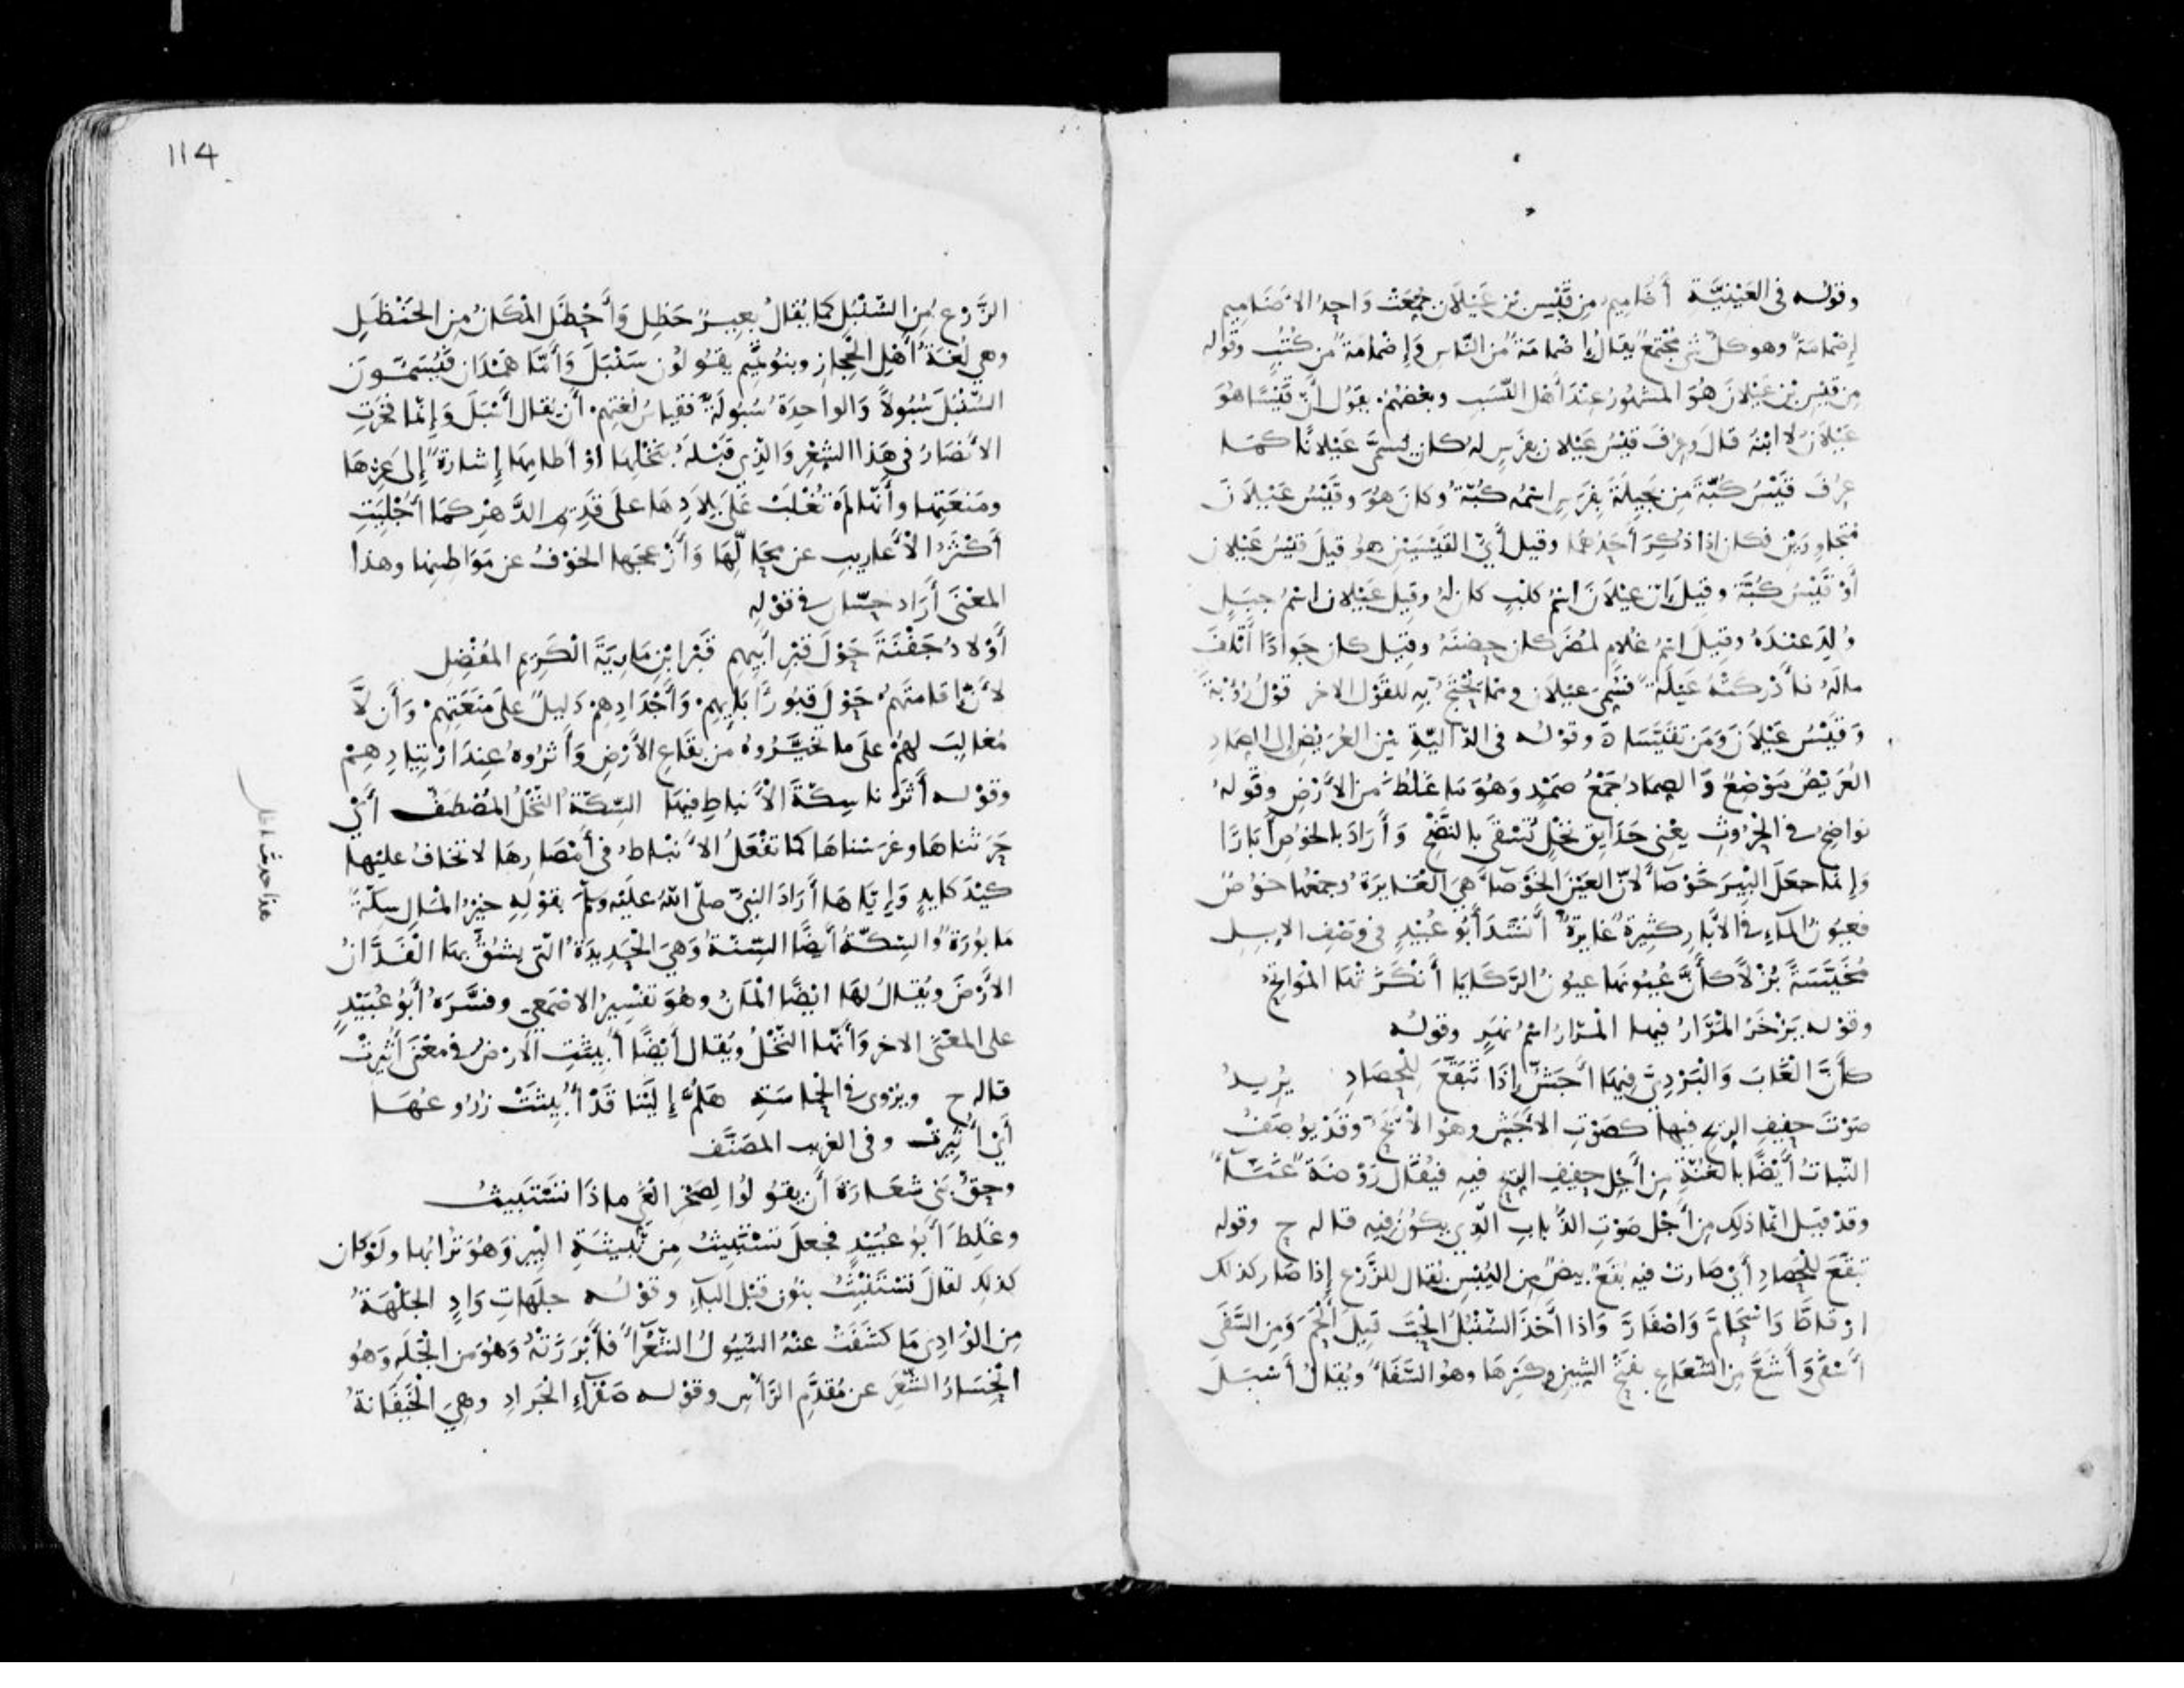 وقوله في العَيْنيَّة أضاميم من قَيْس بن عَيْلان جُمِّعَتْ وَاحِدُ الاضَاميم
إضْمَامَةٌ وهو كلّ شي مُجْتمعٌ يُقالُ إضمامَةٌ من النَّاس وَإضمامَةٌ من كُتُبٍ وقوله
مِن قيسِ بْن عَيْلانَ هُوَ المشهُورُ عنْدَ أهْل النّسَبِ وبعْضُهُم يقولُ أنّ قَيْسًا هُوَ
عَيْلانُ لا ابْنُهُ قالَ وعُرفَ قيْسُ عَيْلان بفَرَسٍ له كان يُسَمَّى عَيْلانًا كمَا
عُرفَ قَيْسُ كُبَّةَ مِن بَجِيلَةَ بِفَرَسٍ اسْمُه كُبَّةُ وكانَ هُوَ وقَيْسُ عَيْلانَ
مُتجَاورَيْن فكان إذا ذُكِرَ أحَدُهُمَا وقيل أيّ القَيْسَيْنِ هو قيلَ قَيْسُ عَيْلان
أوْ قَيْسُ كُبَّةَ وقيلَ إنّ عَيْلانَ اسْمُ كلْبٍ كان لهُ وقيل عَيْلان اسْمُ جبَلٍ
وُلِدَ عنْدَهُ وقيلَ اسْمُ غُلامٍ لمُضَر كان حضنَهُ وقيل كان جَوادًا أتْلَفَ
مالَهُ فأدْركَتْهُ عَيْلَةٌ فسُمّيَ عيْلان وممّا يُحْتجُّ به للقَوْل الاخر قوْلُ رُؤْبَةَ
وَقَيْسُ عَيْلانَ وَمَن تَقَيَّسَا ۞ وقوْله في الدّاليّةِ مِن العُرَيْضِ إلى الصِمَادِ
العُرَيْضُ مَوْضعٌ وَالصِمادُ جَمْعُ صَمْدٍ وَهُوَ مَا غَلُظَ من الأرْضِ وقوله
نواضحُ في الخُرُوتِ يعْني حَدَايِقَ نخْلٍ تُسْقَى بالنَّضْحِ وَأرَادَ بالخُوصِ أبَارًا
وَإنّما جعَلَ البيرَ خَوْصآ لأنّ العَيْنَ الخَوْصآ هيَ الغَايرَةُ وجمعُها خُوصٌ
فعيُونُ المآءِ في الأبَارِ كثيرةٌ غايرَةٌ أنْشَدَ أبُو عُبَيْدٍ في وَصْفِ الإبِلِ
مُخَيَّسَةً بُزْلاً كأنَّ عُيُونَها عيُونُ الرَّكَايَا أنْكَزَتْهَا المَوَاتِحُ
وقوْله يَزْخَرُ المُرَّارُ فيها المُرّارُ اسْمُ نهَرٍ وقولُه
كأنَّ الغَابَ وَالبَرْدِيَّ فيهَا أجَشُّ إذَا تَبَقَّعَ للحَصَادِ يُريدُ
صَوْتَ حفيفِ الريحِ فيها كصَوْتِ الأجَشّ وهو الأبَحُّ وقَدْ يُوصَفُ
النّباتُ أيْضًا بالغُنَّةِ مِن أجْلِ حفيفِ الريح فيهِ فيُقَالُ رَوْضَةٌ غَنَّآءُ
وقدْ قيل انّما ذلك مِن أجْل صَوْتِ الذُّبابِ الّذي يكونُ فيه قاله ح وقوله
تبَقّعَ للحَصادِ أيْ صَارتْ فيه بُقَعٌ بيضٌ مِن اليُبْسِ يُقال للزَّرْع إذا صَار كذلك
ارْقاطَّ وَاسْحَامَّ وَاصْفَارَّ وَاذا أخَذَ السُّنْبُلُ الحَبَّ قيلَ ألْحَمَ وَمِن السَّفَى
أسْفَى وَأشَعَّ مِن الشّعَاعِ بفتحِ الشين وكسْرِهَا وهُو السَّفَا ويُقالُ أسْبَلَ
114
الزَّرْعُ مِن السُّنْبُل كما يُقالُ بعيرٌ حَظِل وَأحْظَلَ المَكَانُ من الحَنْظَلِ
وهي لُغَةُ أهْلِ الحجازِ وبنُو تميم يقولُون سَنْبَلَ وَأمَّا هَمْدَان فيُسَمُّونَ
السُّنْبَلَ سُبُولاً وَالواحدَةُ سُبُولَةٌ فقياسُ لُغتِهم أن يُقالَ أسْبَلَ وَإنّما فخَرَتِ
الأنْصَارُ في هَذا الشعْرِ وَالّذي قَبْلَهُ بنَخْلِهَا اوْ أطامِهَا إشارَةً إلى عِزِهَا
ومَنَعَتِهَا وأنّها لم تُغْلَبْ عَلَى بِلادِهَا على قَدِيم الدَّهْرِ كمَا أجْلِيَتْ
أكْثَرُ الأعاريبِ عن مَحَالّهَا وَأزْعَجَها الخَوْفُ عن مَوَاطِنها وهذا
المعْنَى أرَادَ حسّان في قوْلِهِ
أوْلادُ جَفْنَةَ حَوْلَ قَبْرِ أبيهِم قَبْرِ ابْنِ مَاريَةَ الكَريم المُفْضِل
لأنّ إقامتَهُم حَوْلَ قبُورِ أبَايِهِم وَأجْدَادِهِم دَليلٌ على مَنَعَتِهِم وَأن لاَّ
مُغالِبَ لهُم على ما تخَيَّرُوهُ من بِقَاعِ الأرْضِ وَأثرُوهُ عندَ ارْتيادِهِمْ
وقوْله أثَرْنا سِكّةَ الأنْباطِ فيها السِكّةُ النّخْلُ المُصْطَفُّ أيْ
حَرَثْناهَا وغرَسْناهَا كما تفْعَلُ الأنْبَاطُ في أمْصَارِهَا لا تخافُ عليها
كيْدَ كايدٍ وَإيّاهَا أرَادَ النبيّ صلّى اللهُ علَيْه وسَلّم بقوْلهِ خيْرُ المَالِ سِكّةٌ
مَابُورَةٌ وَالسِكّةُ أيضًا السِّنّةُ وَهيَ الحَدِيدَةُ الّتي يَشُقُّ بهَا الفَدَّانُ
الأرْضَ ويُقالُ لهَا ايْضًا المَانُ وهُوَ تفْسيرُ الاصْمَعِي وفسَّرَهُ أبُو عُبَيْدٍ
على المعْنَى الاخر وَأنّها النّخْلُ ويُقالُ أيْضًا أُبِيثَتِ الأرْضُ في معْنَى أُثيرَتْ
قاله ح ويُرْوى في الحَمَاسَةِ هَلُمَّ إلَيْنَا قَدْ أُبِيثَتْ زُرُوعُهَا
أيْ أُثيرَتْ وفي الغريب المصَنَّف
وحقُّ بَني شعَارَةَ أن يقُولُوا لصَخْرِ الغَيِّ ماذَا تَسْتَبيثُ
وغَلِطَ أبُو عُبَيْدٍ فجعلَ تَسْتَبيثُ مِن نَّبيثَةِ البيرِ وَهُوَ تُرَابُها ولَوْ كان
كذلك لقالَ تَسْتَنْبِثُ بنُون قبْلَ البآءِ وقوْلُه جلَهَاتِ وَادٍ الجَلْهَةُ
مِن الوَادِي مَا كشَفَتْ عنْهُ السّيُولُ الشَّعْرآءَ فأبْرَزَتْهُ وَهُوَ مِن الجَلَه وَهُو
انْحِسَارُ الشّعَر عن مُقدَّمِ الرَّأسِ وقوْله صَفْرَاءِ الجَرادِ وهيَ الخَيْفَانَةُ
هذا حرف